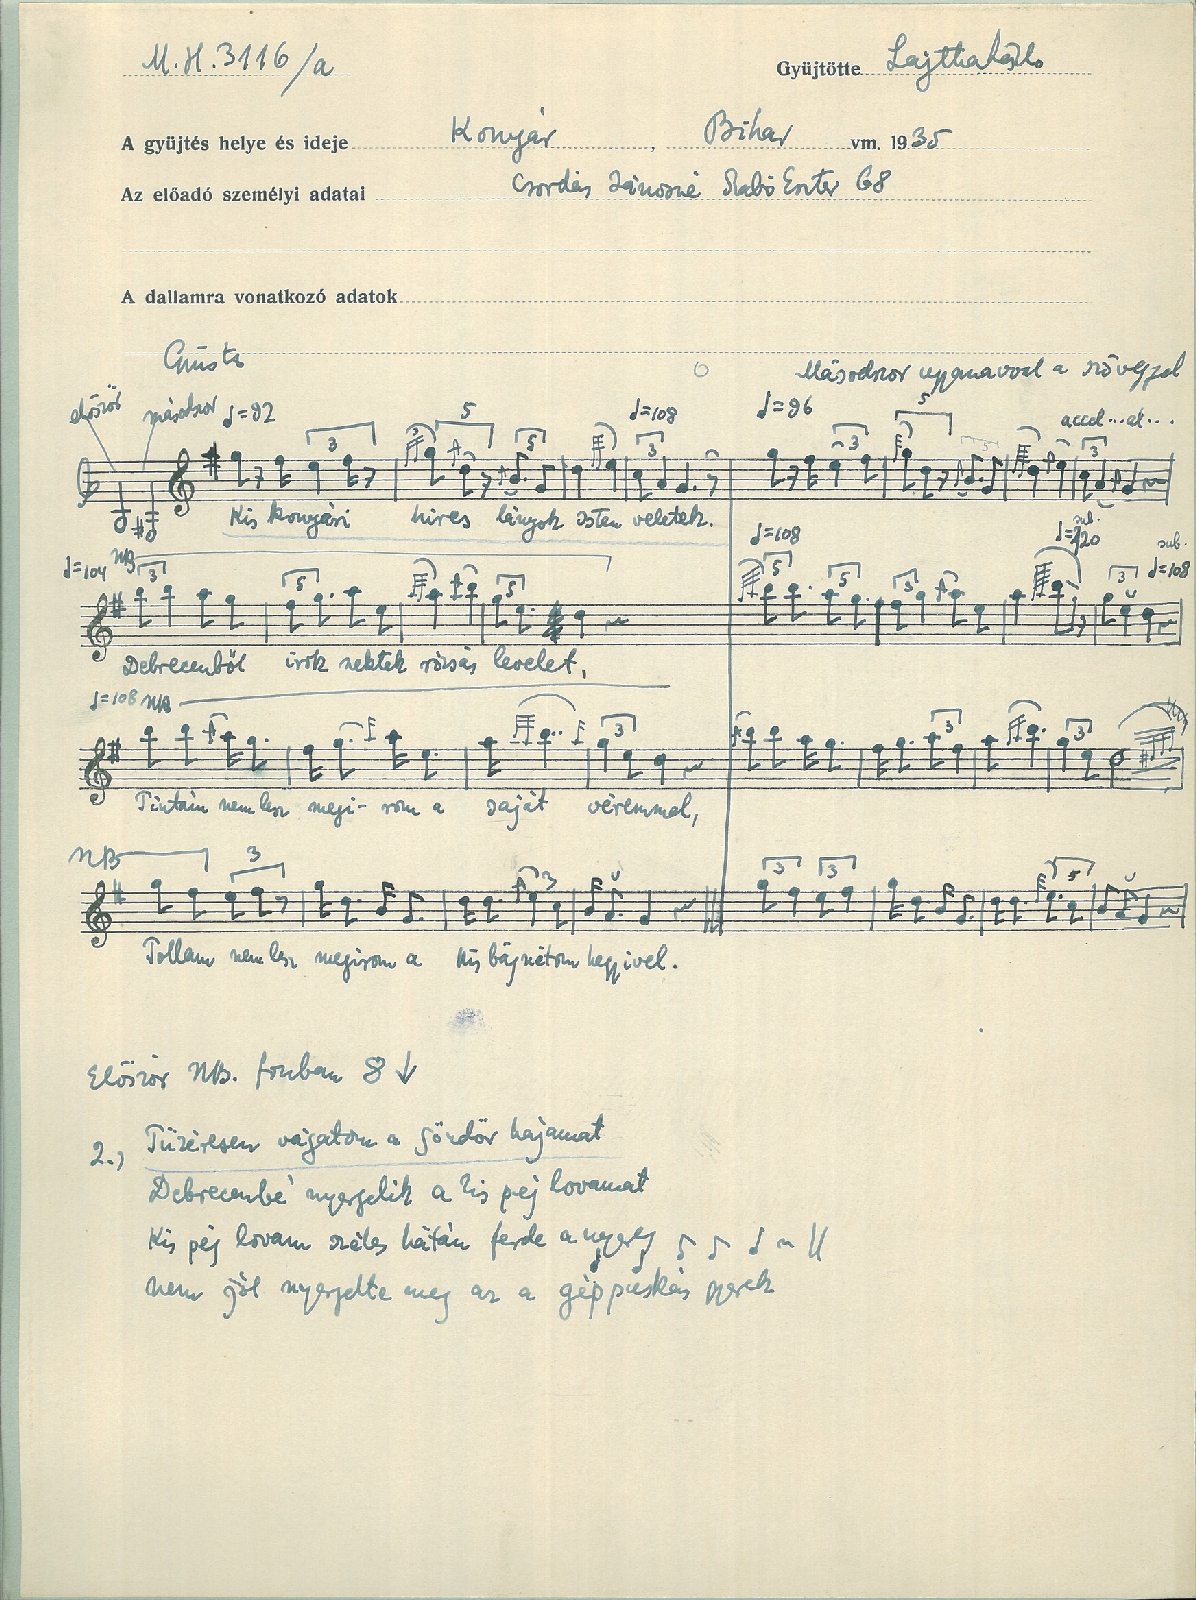 M.H. 3116/a
Gyüjtötte Lajtha László
A gyüjtés helye és ideje Konyár, Bihar vm. 1935
Az előadó személyi adatai Csordás Jánosné Szabó Eszter 68
A dallamra vonatkozó adatok
Giusto
Másodszor ugyanavval a szöveggel
először másodszor ♩=92 3 5 5 ♩=108 3 ♩=96 3 5 5 accel...al... 3
Kis Konyári híres lányok Isten veletek.
♩=104 NB 3 5 5 ♩=108 5 5 5 sub. ♩=120 3 sub. ♩=108
Debrecenből irok nektek rózsás levelet,
♩=108 NB 3 3 3
Tintám nem lesz megi- rom a saját véremmel,
NB 3 3 3 3 5
Tollam nem lesz megirom a kis bágnétom hegyivel.
Először NB. fonban 8 ↓
2., Tüzéresen vágatom a göndör hajamat
Debrecenbe' nyergelik a kis pej lovamat
Kis pej lovam széles hátán ferde a nyereg
nem jól nyergelte meg az a géppuskás gyerek